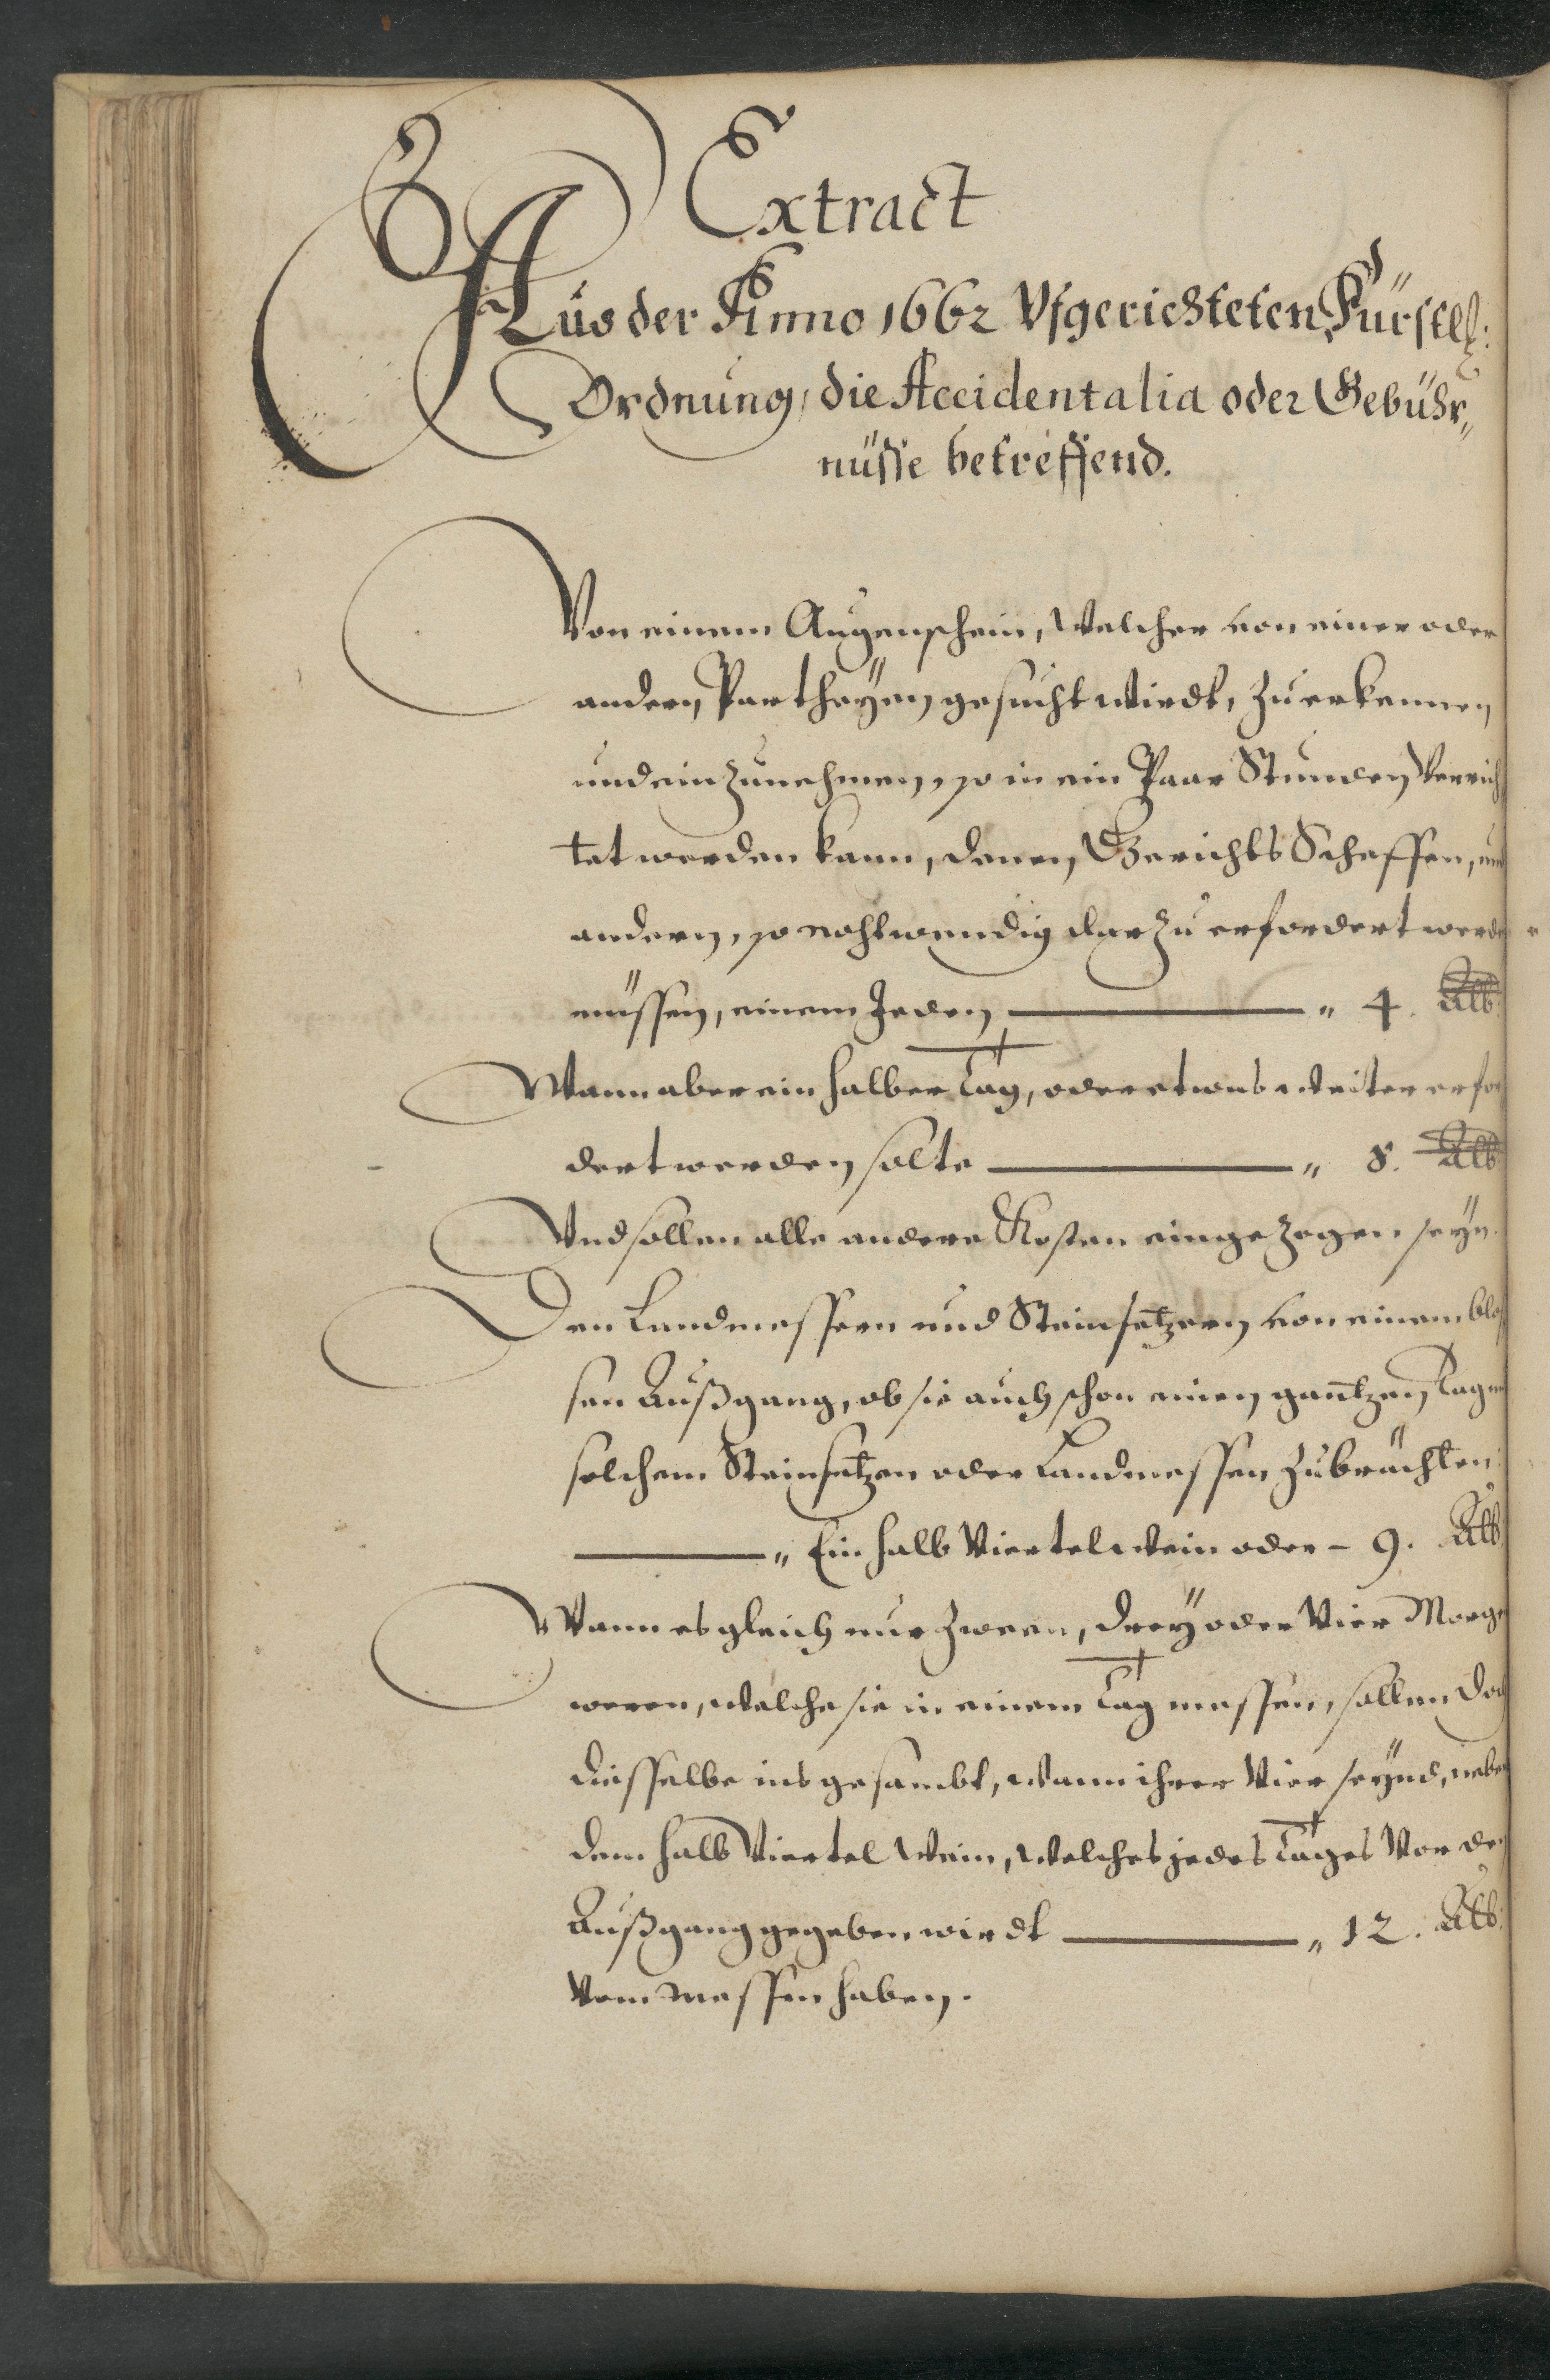 Extract
Aus der Anno 1662 Vfgerichteten Fürstl:
Ordnung, die Accidentalia oder Gebühr„
nüsse betreffend.
Von einem Augenschein, welcher von einer oder
andern Partheÿen gesucht wirdt, zu erkennen
und einzunehmen, so in ein Paar Stunden verrich
tet werden kann, denen Gerichts Scheffen, und
andern, so nohtwendig darzu erfordert werde
müssen, einem Jeden „ 4. Alb:
Wann aber ein halber Tag, oder etwas weiter erfor
dert werden solte „ 8. Alb
Vnd sollen alle andere Kosten eingezogen seÿn.
Den Landmessern und Steinsetzern von einem blos
sen Außgang, ob sie auch schon einen gantzen Tag
solchem Steinsetzen oder Landmessen zubrächten
„ Ein halb Viertel wein oder – 9. Alb
Wann es gleich nur zween, dreÿ oder Vier Morge
weren, welche sie in einem Tag messen, sollen doch
diesselbe ins gesambt, wann ihrer Vier seÿnd, neben
dem halb Viertel Wein, welches jedes Tages Vor de
Außgang gegeben wirdt „ 12. Alb:
Vom messen haben.